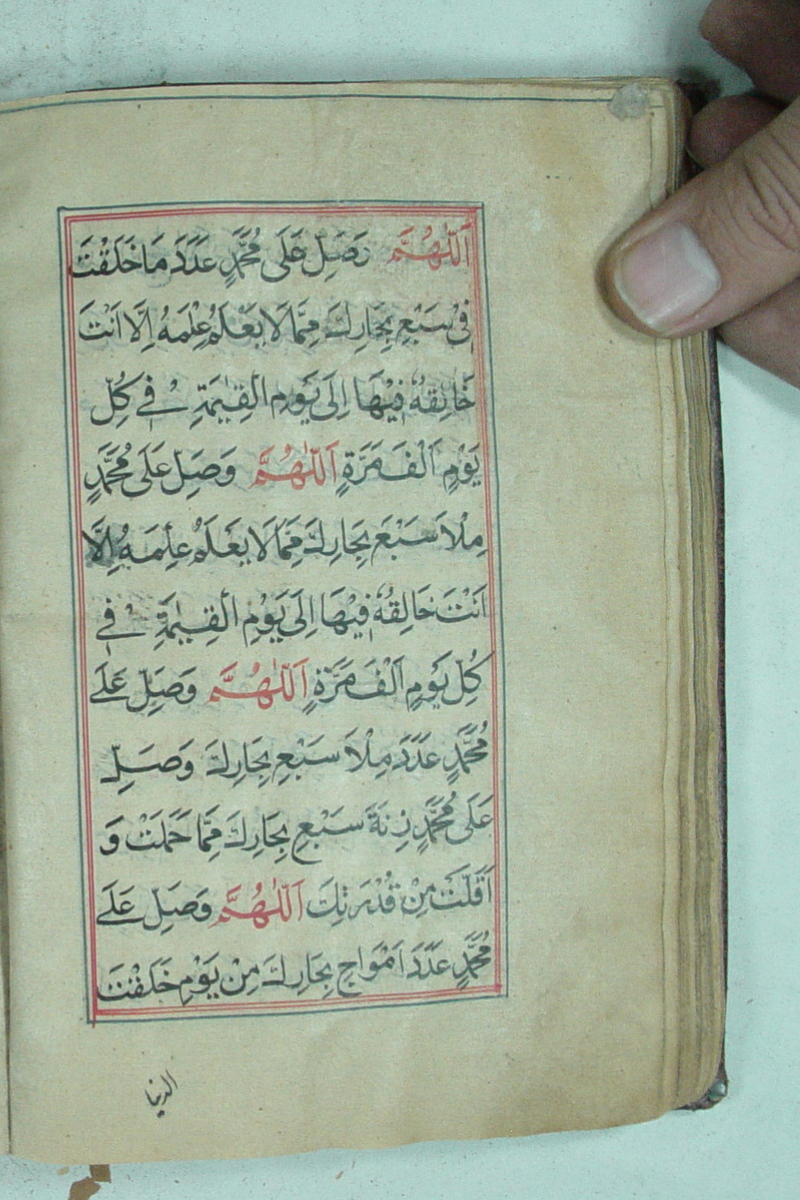 اَللّٰهُمَّ وَصَلِّ عَلَى مُحَمَّدٍ عَدَدَ مَا خَلَقْتَ
فِى سَبْعِ بِحَارِكَ مِمَّا لَا يَعْلَمُ عِلْمَهُ اِلَّا اَنْتَ
خَالِقُهُ فِيْهَا اِلَى يَوْمِ الْقِيٰمَةِ فِى كُلِّ
يَوْمٍ اَلْفَ مَرَّةٍ اَللّٰهُمَّ وَصَلِّ عَلَى مُحَمَّدٍ
مِلْاَ سَبْعَ بِحَارِكَ مِمَّا لَا يَعْلَمُ عِلْمَهُ اِلَّا
اَنْتَ خَالِقُهُ فِيْهَا اِلَى يَوْمِ الْقِيٰمَةِ فِى
كُلِّ يَوْمٍ اَلْفَ مَرَّةٍ اَللّٰهُمَّ وَصَلِّ عَلَى
مُحَمَّدٍ عَدَدَ مِلْاَ سَبْعِ بِحَارِكَ وَصَلِّ
عَلَى مُحَمَّدٍ زِنَةَ سَبْعِ بِحَارِكَ مِمَّا حَمَلَتْ وَ
اَقَلَّتْ مِنْ قُدْرَتِكَ اَللّٰهُمَّ وَصَلِّ عَلَى
مُحَمَّدٍ عَدَدَ اَمْوَاجِ بِحَارِكَ مِنْ يَوْمِ خَلَقْتَ
الدنيا